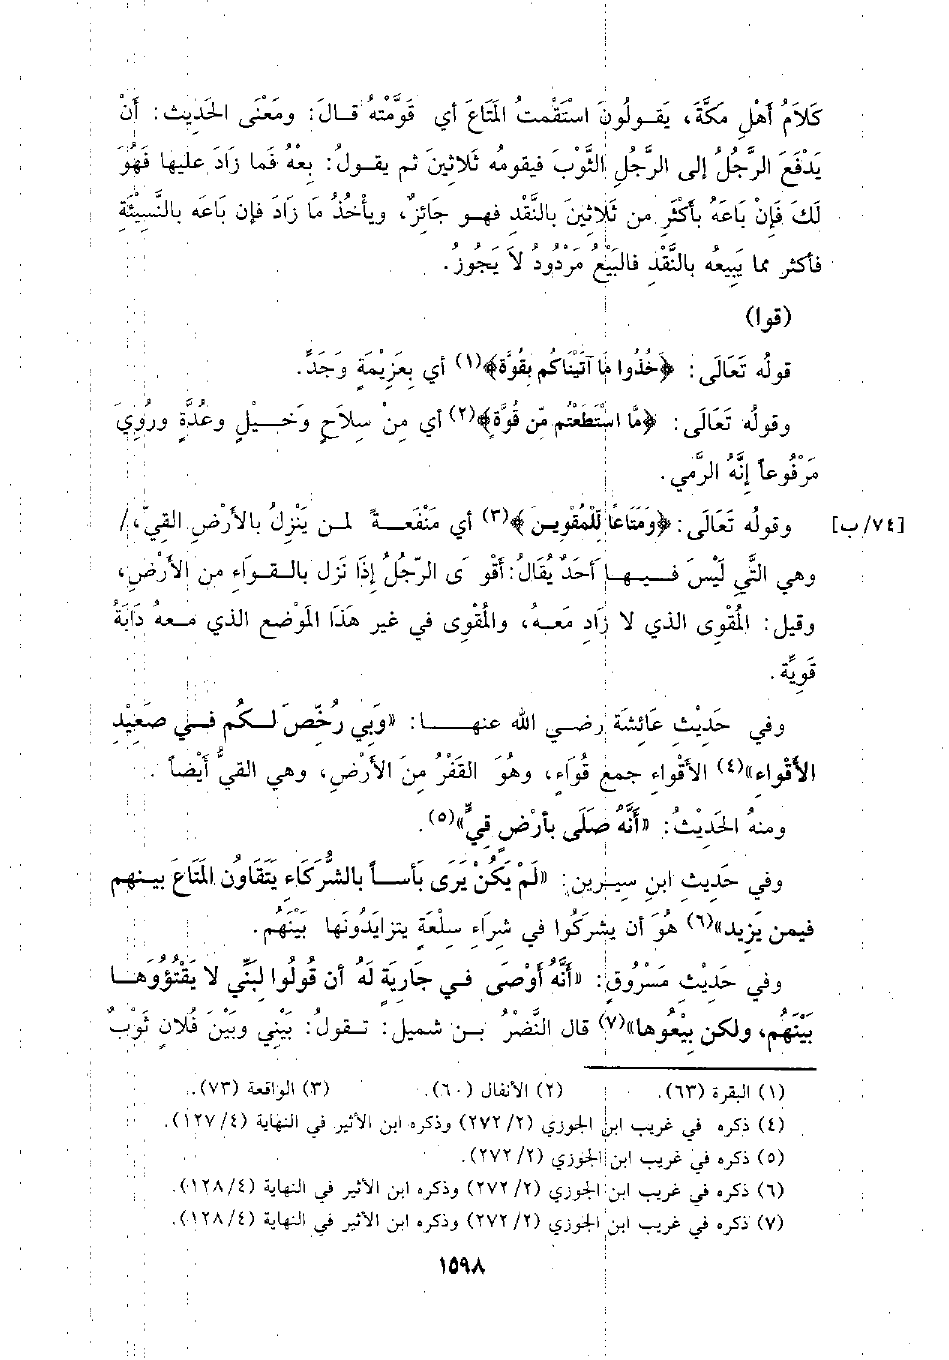 كَلاَمُ أَهْلِ مَكَّةَ، يَقُولُونَ اسْتَقْمتُ المَتَاعَ أي قَوَّمْتهُ قَالَ: ومَعْنَى الحَدِيث: أَنْ
يَدْفَعَ الرَّجُلُ إلى الرَّجُلِ الثَّوْبَ فيقومُه ثَلاَثِينَ ثم يقولُ: بِعْهُ فَما زَادَ عليها فَهُوَ
لَكَ فَإِنْ بَاعَهُ بأكْثَرِ من ثَلاَثِينَ بالنَّقْدِ فهو جَائِزٌ، ويأخُذُ مَا زَادَ فإن بَاعَه بالنَّسِيْئَةِ
فأكثر مما يَبِيعُه بالنَّقْدِ فالبَيْعُ مَرْدُودُ لاَ يَجُوزُ.
(قوا)
قولُه تَعَالَى: ﴿خُذُوا مَا آتَيْنَاكُم بِقُوَّة﴾(١) أي بِعَزِيْمَةٍ وَجَدًّ.
وقولُه تَعَالَى: ﴿مَّا اسْتَطَعْتُم مِّن قُوَّةٍ﴾(٢) أي مِنْ سِلاَحٍ وَخَيْلٍ وعُدَّةٍ ورُوِيَ
مَرْفُوعاً إنَّهُ الرَّمي.
وقولُه تَعَالَى: ﴿وَمَتَاعًا لِّلْمُقْوِينَ﴾(٣) أي مَنْفَعَةً لمن يَنْزِلُ بالأَرْضِ القِيِّ،/ [٧٤/ب]
وهي التَّيِ لَيْسَ فيها أَحَدٌ يُقَالُ: أقْوَى الرّجُلُ إِذَا نَزل بالقواءِ من الأَرْضِ،
وقيل: المُقْوِى الذي لا زَادِ مَعهُ، والمُقْوِى في غيرِ هَذَا المَوْضعِ الذي معهُ دَابَةٌ
قَوِيِّة.
وفي حَدِيْثِ عَائِشَة رضي الله عنها: «وَبِي رُخّصَ لكُم في صَعِيْدِ
الأَقْواءِ»(٤) الأَقْواءِ جمع قُوَاءٍ، وهُوَ القَفْرُ مِنَ الأَرْضِ، وهي القيُّ أَيْضاً.
ومنهُ الحَدِيْثُ: «أَنَّهُ صَلَى بأرْضٍ قيٍّ»(٥).
وفي حَدِيْثِ ابنِ سِيرِين: «لَمْ يَكُنْ يَرَى بَأساً بالشُّرَكَاءِ يَتَقَاوُن المَتَاعَ بينهم
فيمن يَزِيد»(٦) هُوَ أن يشركُوا في شِرَاءِ سِلْعَةٍ يتزايدُونَها بَيْنَهُم.
وفي حَدِيْثِ مَسْرُوقٍ: «أَنَّهُ أَوْصَى في جَارِيَة لَهُ أن قُولُوا لِبَنِّي لا يَقْتُوُوهَا
بَيْنَهُم، ولكن بِيْعُوها»(٧) قال النَّضْرُ بن شميل: تقولُ: بَيْنِي وبَيْنَ فُلانٍ ثَوْبٌ
(١) البقرة (٦٣). (٢) الأنفال (٦٠). (٣) الواقعة (٧٣).
(٤) ذكره في غريب ابن الجوزي (٢٧٢/٢) وذكره ابن الأثير في النهاية (١٢٧/٤).
(٥) ذكره في غريب ابن الجوزي (٢٧٢/٢).
(٦) ذكره في غريب ابن الجوزي (٢٧٢/٢) وذكره ابن الأثير في النهاية (١٢٨/٤).
(٧) ذكره في غريب ابن الجوزي (٢٧٢/٢) وذكره ابن الأثير في النهاية (١٢٨/٤).
١٥٩٨